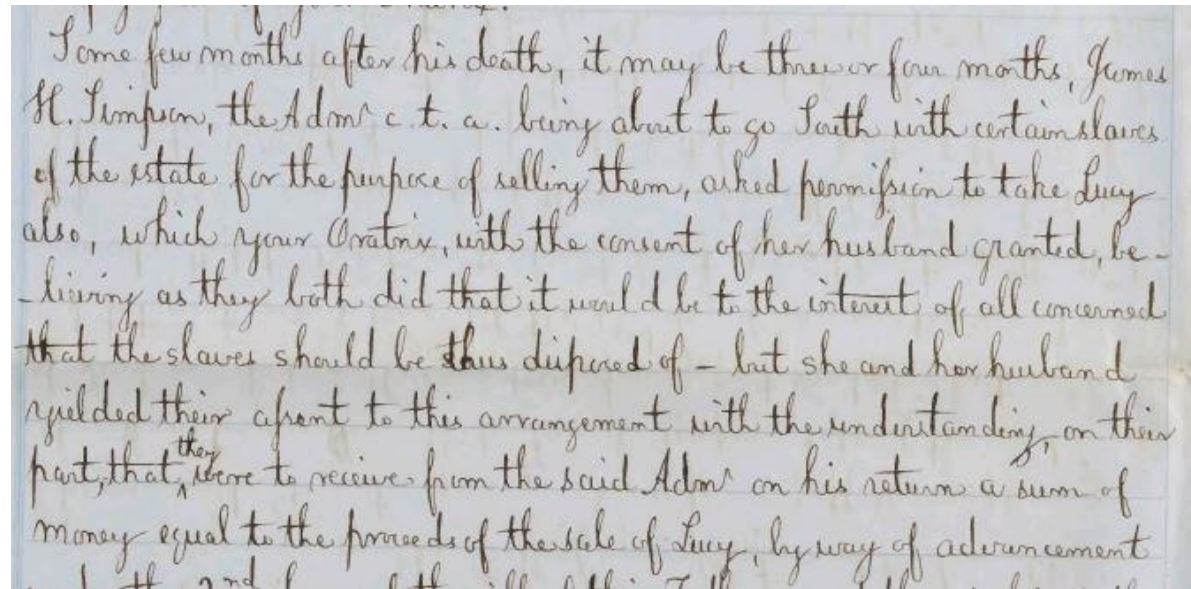 Some few months after his death, it may be three or four months, James
H. Simpson, the Admr c. t. a. being about to go South with certain slaves
of the estate for the purpose of selling them, asked permission to take Lucy
also, which your Oratrix, with the consent of her husband granted, be-
-lieving as they both did that it would be to the interest of all concerned
that the slaves should be thus disposed of - but she and her husband
yielded their assent to this arrangement with the understanding, on their
part, that they were to receive from the said Admr on his return a sum of
money equal to the proceeds of the sale of Lucy, by way of advancement